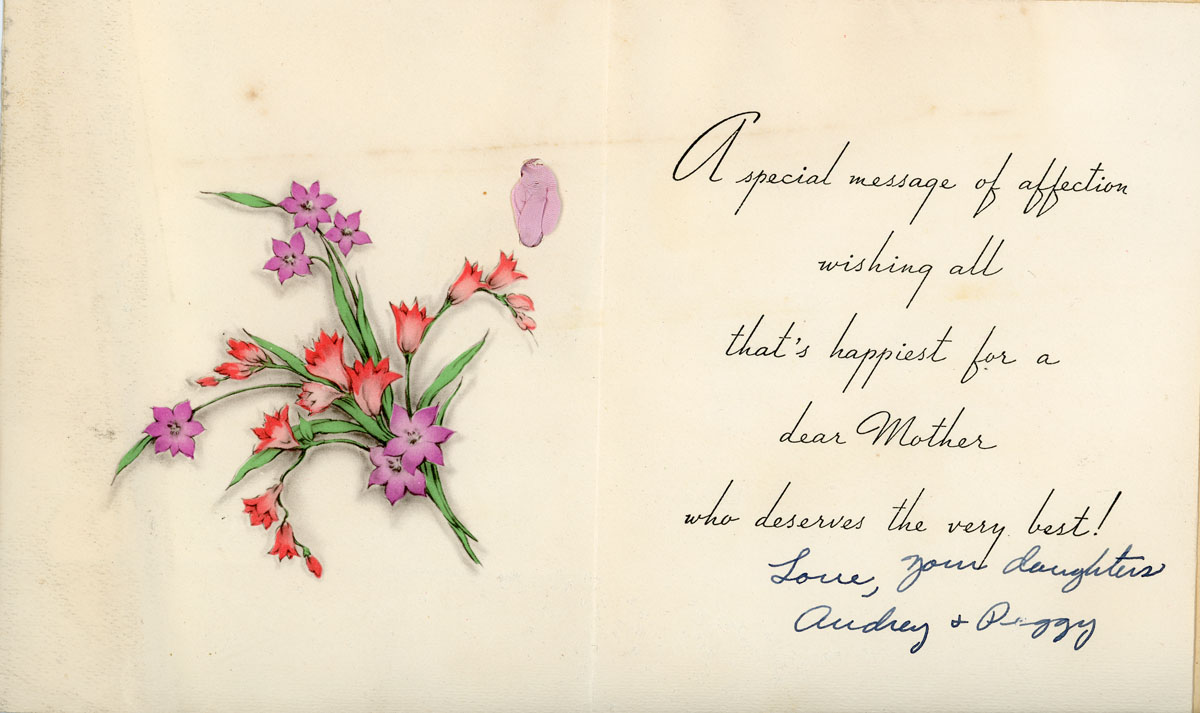 A special message of affection
wishing all
that's happiest for a
dear Mother
who deserves the very best!
Love, your daughters
Audrey & Peggy